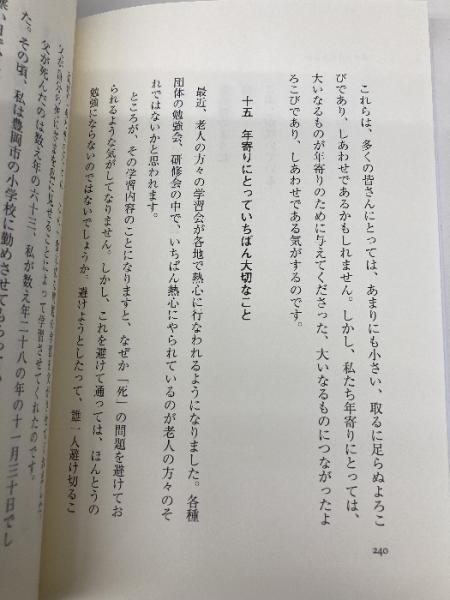 これらは、多くの皆さんにとっては、あまりにも小さい、取るに足らぬよろこ
びであり、しあわせであるかもしれません。しかし、私たち年寄りにとっては、
大いなるものが年寄りのために与えてくださった、大いなるものにつながったよ
ろこびであり、しあわせである気がするのです。
十五 年寄りにとっていちばん大切なこと
最近、老人の方々の学習会が各地で熱心に行なわれるようになりました。各種
団体の勉強会、研修会の中で、いちばん熱心にやられているのが老人の方々のそ
れではないかと思われます。
ところが、その学習内容のことになりますと、なぜか「死」の問題を避けてお
られるような気がしてなりません。しかし、これを避けて通っては、ほんとうの
勉強にならないのではないでしょうか。避けようとしたって、誰一人避け切るこ
240
によって学習させてくれたのです。
父が死んだのは数え年の六十三、私が数え年二十八の年の十一月三十日でし
た。その頃、私は豊岡市の小学校に勤めさせてもらって